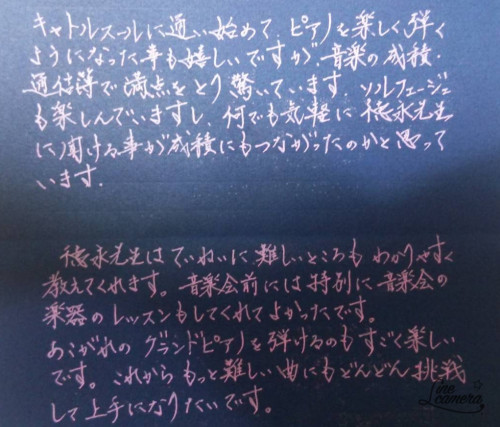 キャトルスールに通い始めて、ピアノを楽しく弾く
ようになった事も嬉しいですが、音楽の成積・
通信簿で満点をとり驚いています。ソルフェージュ
も楽しんでいますし、何でも気軽に徳永先生
に聞ける事が成積にもつながったのかと思って
います。
徳永先生はていねいに難しいところもわかりやすく
教えてくれます。音楽会前には特別に音楽会の
楽器のレッスンもしてくれてよかったです。
あこがれのグランドピアノを弾けるのもすごく楽しい
です。これからもっと難しい曲にもどんどん挑戦
して上手になりたいです。
Line camera